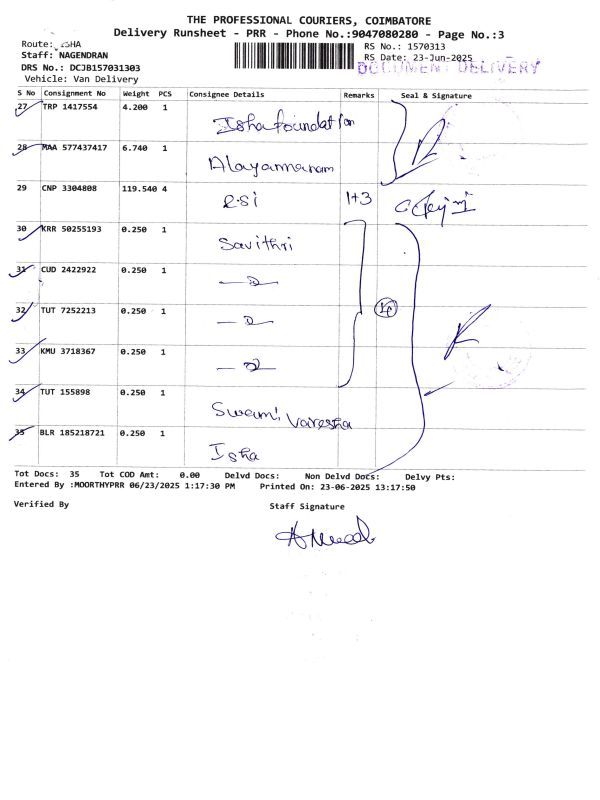 THE PROFESSIONAL COURIERS, COIMBATORE
Delivery Runsheet - PRR - Phone No.:9047080280 - Page No.:3
Route: ISHA
RS No.: 1570313
Staff: NAGENDRAN
RS Date: 23-Jun-2025
DRS No.: DCJB157031303
DOCUMENT DELIVERY
Vehicle: Van Delivery
S No Consignment No Weight PCS Consignee Details Remarks Seal & Signature
27 TRP 1417554 4.200 1 Isha foundation
28 MAA 577437417 6.740 1 Alayamanam
29 CNP 3304808 119.540 4 1+3
30 KRR 50255193 0.250 1 Savithri
31 CUD 2422922 0.250 1
32 TUT 7252213 0.250 1
33 KMU 3718367 0.250 1
34 TUT 155898 0.250 1 Swami
35 BLR 185218721 0.250 1 Isha
Tot Docs: 35 Tot COD Amt: 0.00 Delvd Docs: Non Delvd Docs: Delvy Pts:
Entered By :MOORTHYPRR 06/23/2025 1:17:30 PM Printed On: 23-06-2025 13:17:50
Verified By Staff Signature